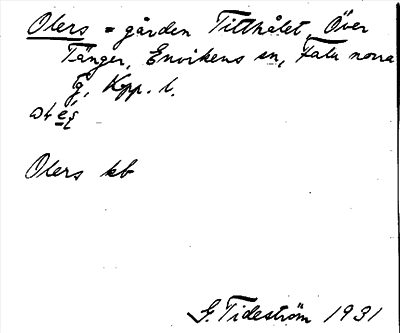 Olers = gården Titthålet, Över
Tänger, Envikens sn, Falu norra
g, Kpp. l.
Olers kb
G. Tideström 1931